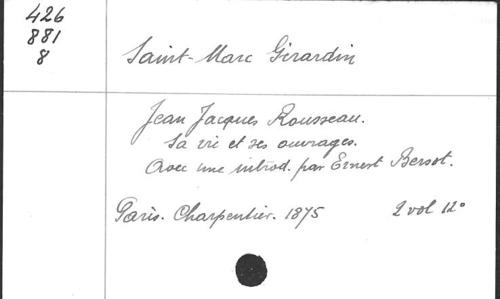 426
881
8
Saint-Marc Girardin
Jean Jacques Rousseau.
Sa vie et ses ouvrages.
Avec une introd. par Ernest Bersot.
Paris. Charpentier. 1875 2 vol 12°